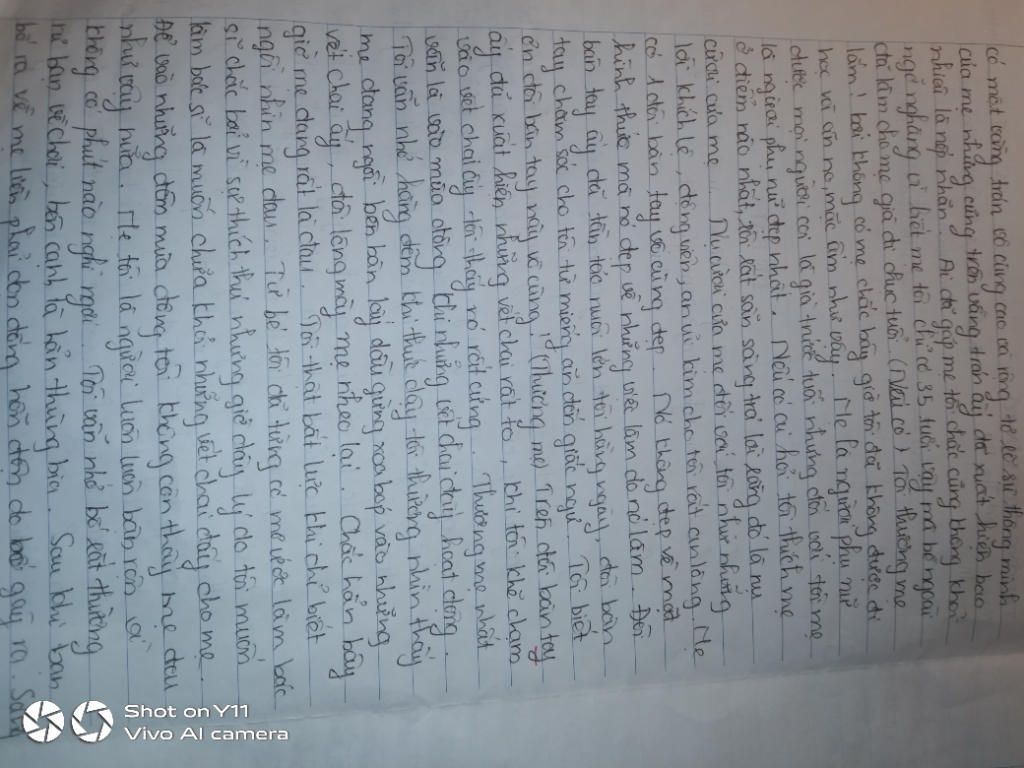 có một vầng trán vô cùng cao và rộng thể lộ sự thông minh
của mẹ nhưng cũng trên vầng trán ấy đã xuất hiện bao
nhiêu là nếp nhăn. Ai đó gặp mẹ tôi chắc cũng không khỏi
ngỡ ngàng vì biết mẹ tôi chỉ 35 tuổi vậy mà bề ngoài
đã làm cho mẹ già đi chục tuổi. (Nếu có) Tôi thương mẹ
lắm! bởi không có mẹ chắc bây giờ tôi đã không được đi
học và ăn no, mặc ấm như vậy. Mẹ là người phụ nữ
được mọi người coi là già trước tuổi nhưng đối với tôi mẹ
là người phụ nữ đẹp nhất. Nếu có ai hỏi tôi thích mẹ
ở điểm nào nhất, tôi rất sẵn sàng trả lời rằng đó là nụ
cười của mẹ. Nụ cười của mẹ đối với tôi như những
lời khích lệ, động viên, an ủi làm cho tôi rất an lòng. Mẹ
có 1 đôi bàn tay vô cùng đẹp. Nó không đẹp về mặt
hình thức mà nó đẹp về những việc làm do nó làm. Đôi
bàn tay ấy đã tần tảo nuôi lớn tôi hằng ngày, đôi bàn
tay chăm sóc cho tôi từ miếng ăn đến giấc ngủ. Tôi biết
ơn đôi bàn tay này vô cùng! (Thương mẹ) Trên đôi bàn tay
ấy đã xuất hiện những vết chai rất to, khi tôi khẽ chạm
vào vết chai ấy tôi thấy nó rất cứng. Thương mẹ nhất
vẫn là vào mùa đông khi những vết chai đấy hoạt động.
Tôi vẫn nhớ hằng đêm khi thức dậy tôi thường nhìn thấy
mẹ đang ngồi bên bàn lấy dầu gừng xoa bóp vào những
vết chai ấy, đôi lông mày mẹ nheo lại. Chắc hẳn bây
giờ mẹ đang rất là đau. Tôi thật bất lực khi chỉ biết
ngồi nhìn mẹ đau. Từ bé tôi đã từng có mơ ước làm bác
sĩ chắc bởi vì sự thích thú nhưng giờ đây lý do tôi muốn
làm bác sĩ là muốn chữa khỏi những vết chai đấy cho mẹ.
Để vào những đêm mùa đông tôi không còn thấy mẹ đau
như vậy nữa. Mẹ tôi là người luôn luôn bận rộn và
không có phút nào nghỉ ngơi. Tôi vẫn nhớ bố rất thường
rủ bạn về chơi, bên cạnh là hẳn thùng bia. Sau khi bạn
bố ra về mẹ liền phải dọn đống hỗn độn do bố gây ra. Sáng
Shot on Y11
Vivo AI camera